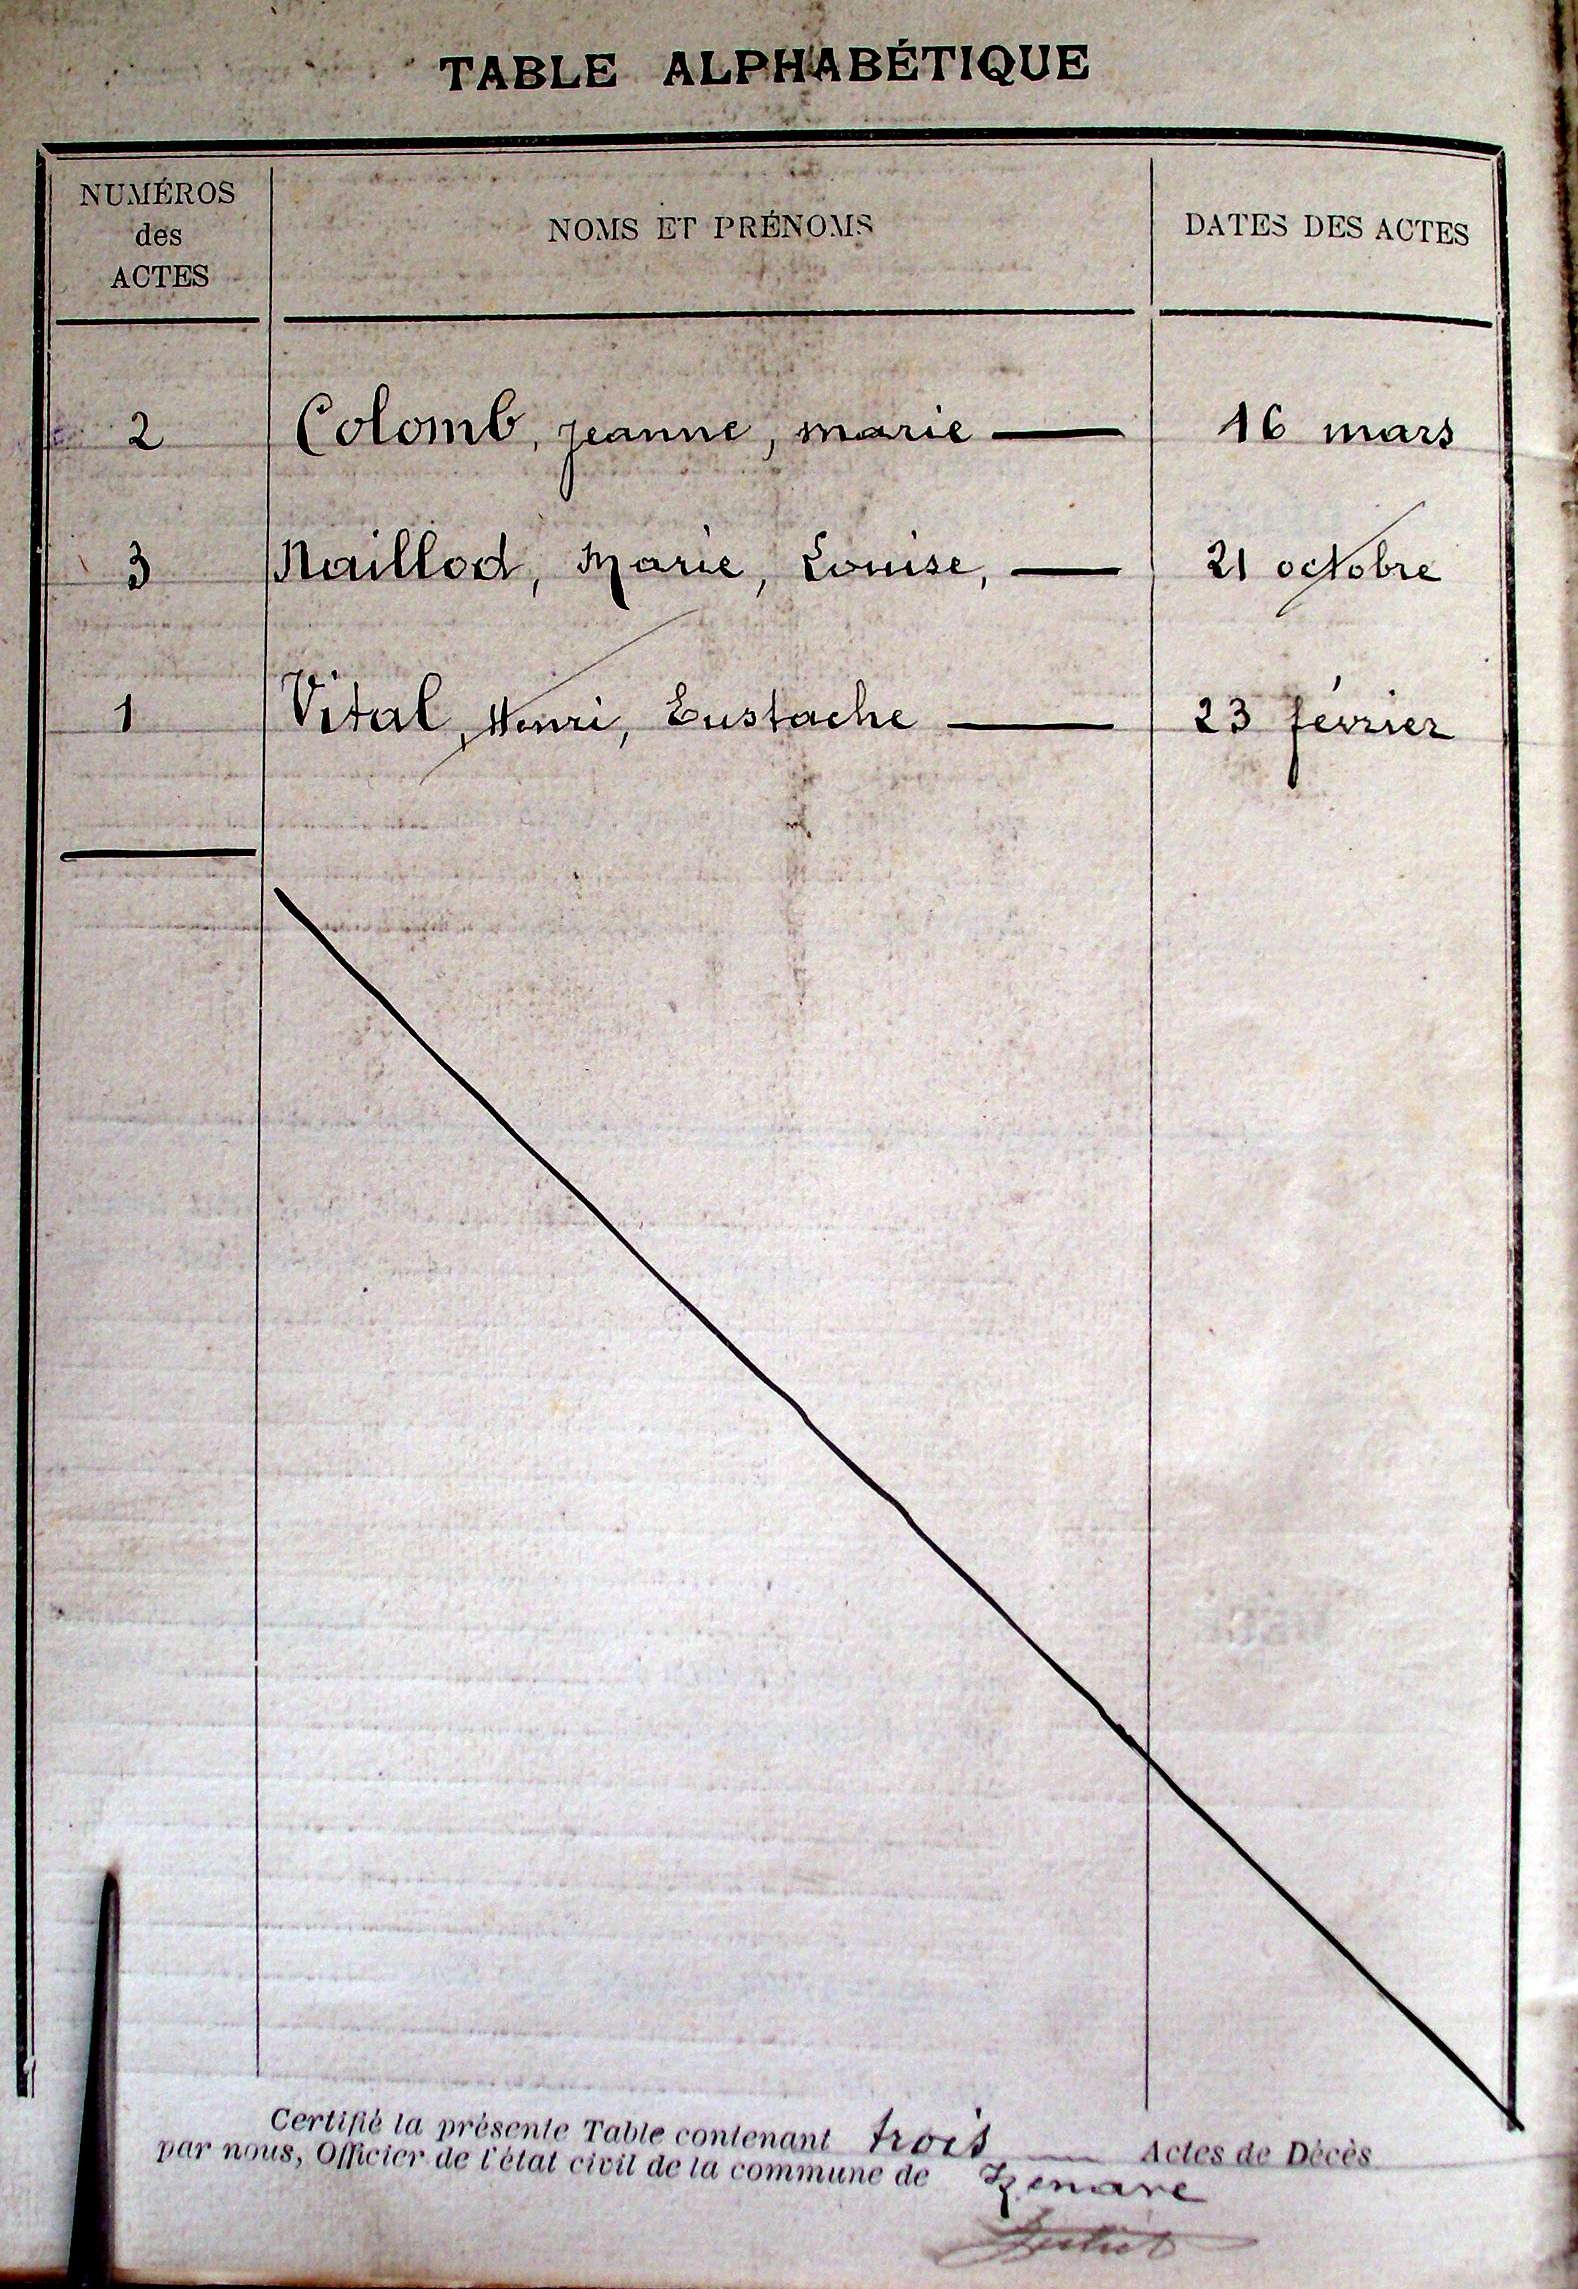 TABLE ALPHABÉTIQUE
NUMÉROS
des
ACTES
NOMS ET PRÉNOMS
DATES DES ACTES
2 Colomb, Jeanne, marie — 16 mars
3 Naillod, Marie, Louise, — 21 octobre
1 Vital, Henri, Eustache — 23 février
Certifié la présente Table contenant trois — Actes de Décès
par nous, Officier de l'état civil de la commune de